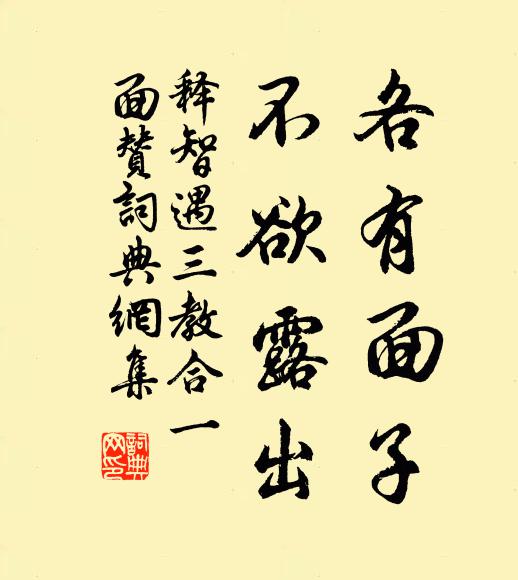 各有面子
不欲露出
释智遇三教合一
面赞詞典網集
詞典
网印